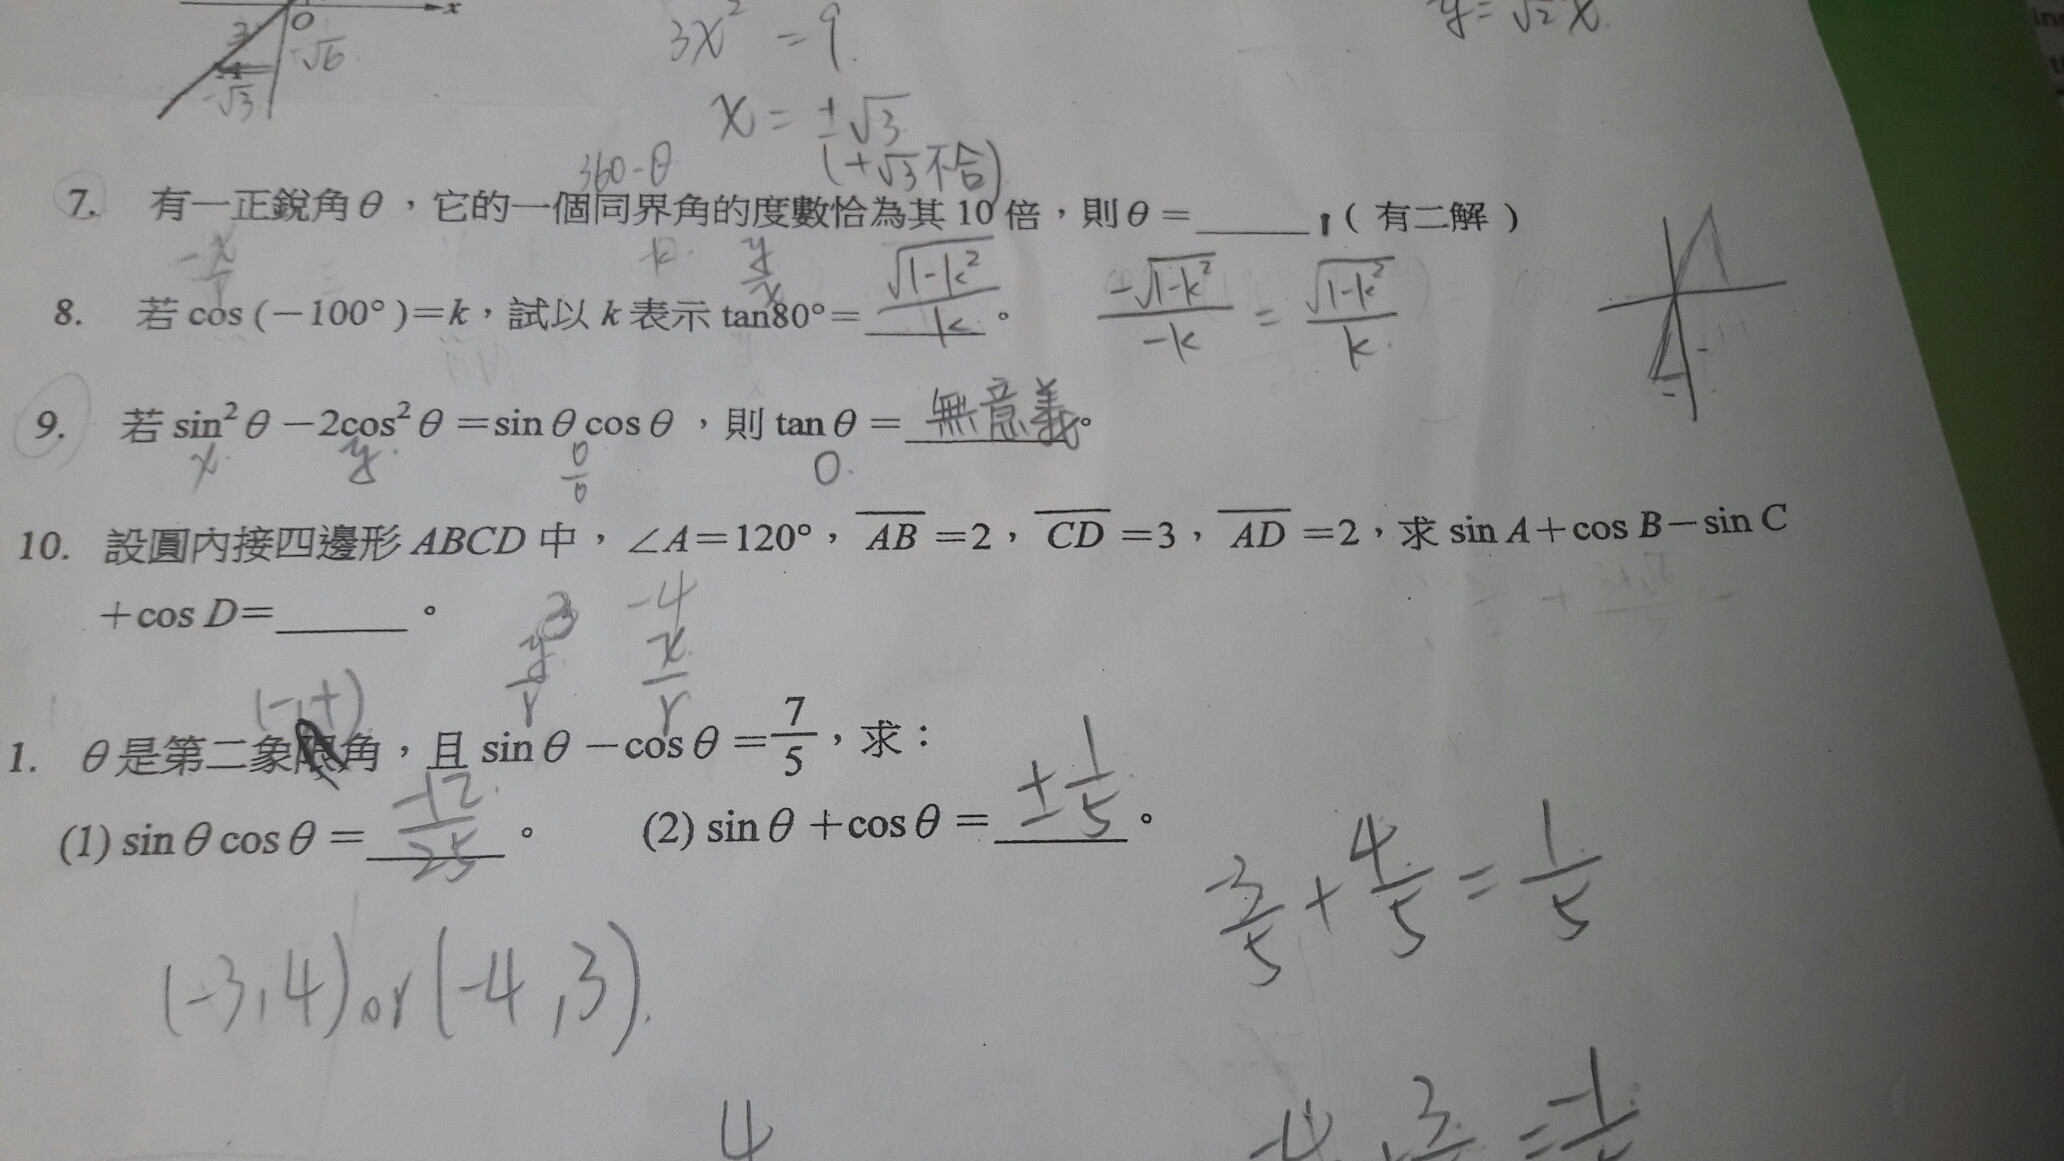 x
O
3
-√6
-√3
3x² = 9
x = ±√3
(+√3不合)
y = √2 x
360-θ
7. 有一正銳角θ，它的一個同界角的度數恰為其10倍，則θ=______。（有二解）
-x/r
k
y/x
8. 若cos(－100°)=k，試以k表示tan80°= √1-k² / k 。
-√1-k² / -k = √1-k² / k
9. 若sin²θ－2cos²θ=sinθcosθ，則tanθ=無意義。
x y 0/0 0
10. 設圓內接四邊形ABCD中，∠A=120°，AB=2，CD=3，AD=2，求sinA+cosB－sinC
+cosD=______。
3 -4
y/r x/r
(-,+)
1. θ是第二象限角，且sinθ－cosθ=7/5，求：
(1) sinθcosθ= -12/25 。 (2) sinθ+cosθ= ±1/5 。
-3/5 + 4/5 = 1/5
(-3,4) or (-4,3).
4
-4 3 = -1